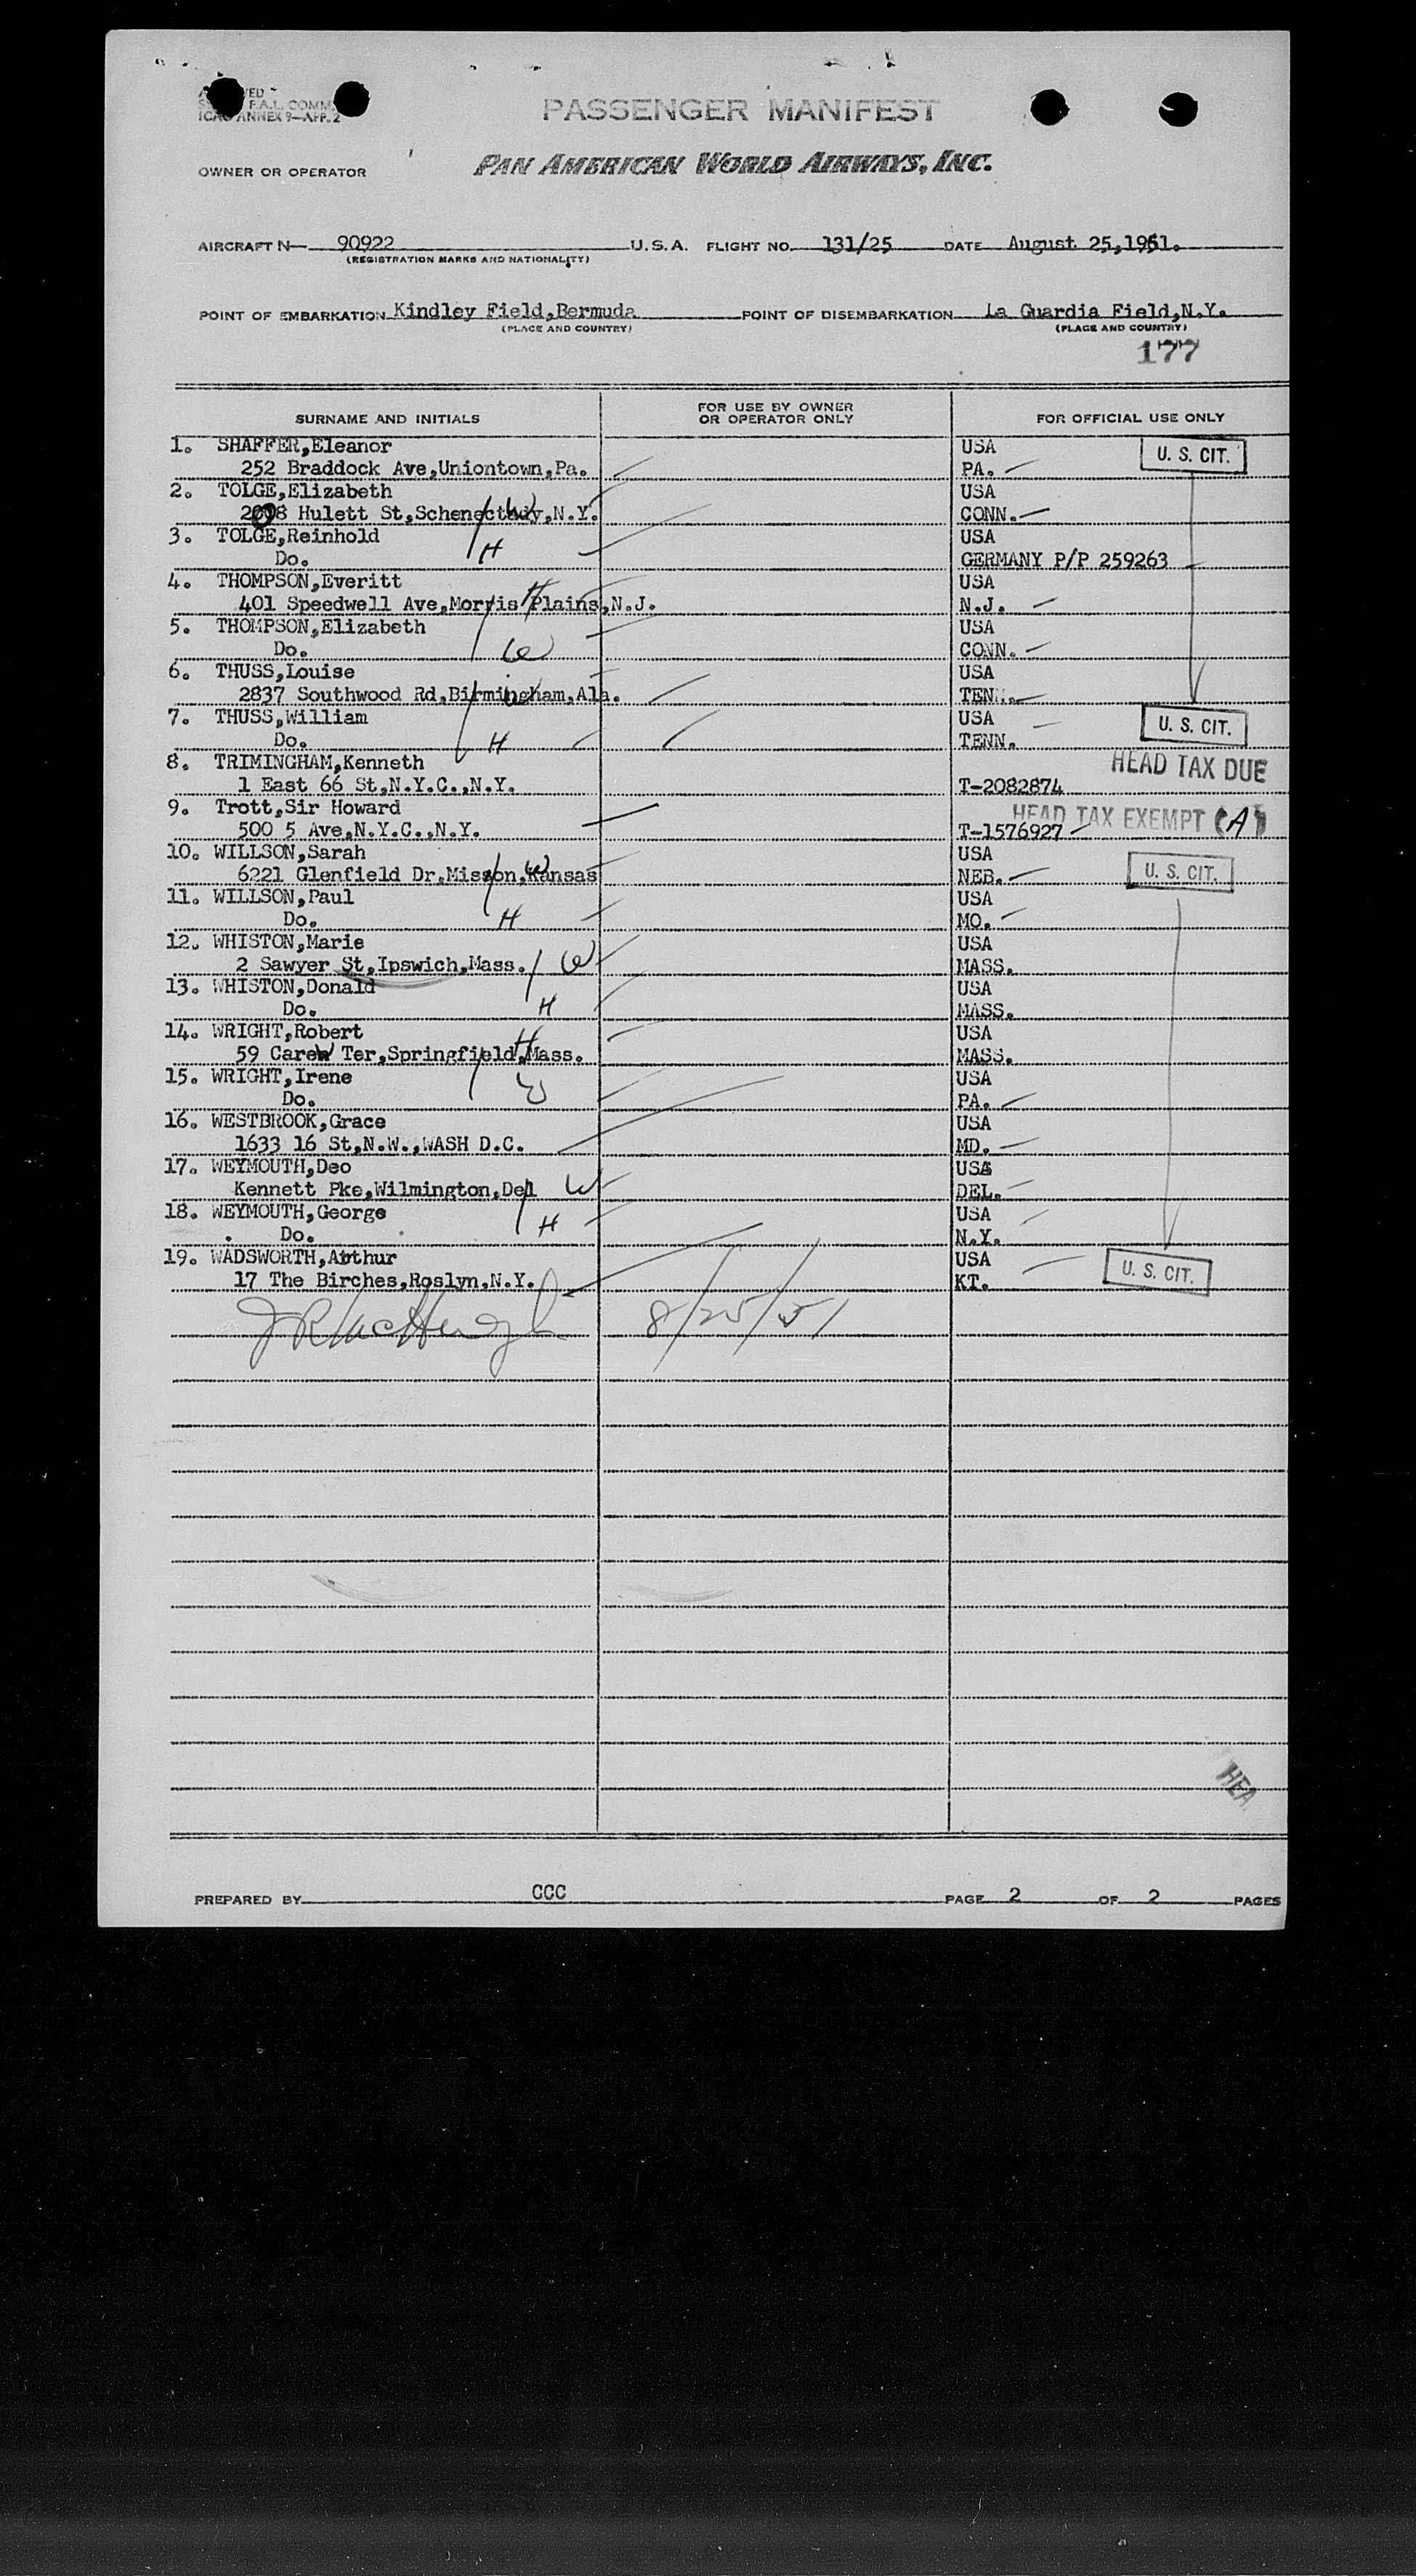 F.A.L. COMM.
ICAO ANNEX 9—APP. 2
PASSENGER MANIFEST
OWNER OR OPERATOR PAN AMERICAN WORLD AIRWAYS, INC.
AIRCRAFT N— 90922 U.S.A. FLIGHT NO. 131/25 DATE August 25,1951.
(REGISTRATION MARKS AND NATIONALITY)
POINT OF EMBARKATION Kindley Field,Bermuda POINT OF DISEMBARKATION La Guardia Field,N.Y.
(PLACE AND COUNTRY) (PLACE AND COUNTRY)
177
SURNAME AND INITIALS FOR USE BY OWNER OR OPERATOR ONLY FOR OFFICIAL USE ONLY
1. SHAFFER,Eleanor USA U. S. CIT.
252 Braddock Ave,Uniontown,Pa. PA.
2. TOLGE,Elizabeth USA
2008 Hulett St,Schenectady,N.Y. W CONN.
3. TOLGE,Reinhold USA
Do. H GERMANY P/P 259263
4. THOMPSON,Everitt USA
401 Speedwell Ave,Morris Plains,N.J. H N.J.
5. THOMPSON,Elizabeth USA
Do. W CONN.
6. THUSS,Louise USA
2837 Southwood Rd,Birmingham,Ala. W TENN.
7. THUSS,William USA U. S. CIT.
Do. H TENN.
8. TRIMINGHAM,Kenneth HEAD TAX DUE
1 East 66 St,N.Y.C.,N.Y. T-2082874
9. Trott,Sir Howard HEAD TAX EXEMPT (A)
500 5 Ave,N.Y.C.,N.Y. T-1576927
10. WILLSON,Sarah USA U. S. CIT.
6221 Glenfield Dr,Misson,Kansas W NEB.
11. WILLSON,Paul USA
Do. H MO.
12. WHISTON,Marie USA
2 Sawyer St,Ipswich,Mass. W MASS.
13. WHISTON,Donald USA
Do. H MASS.
14. WRIGHT,Robert USA
59 Carew Ter,Springfield,Mass. H MASS.
15. WRIGHT,Irene USA
Do. W PA.
16. WESTBROOK,Grace USA
1633 16 St,N.W.,WASH D.C. MD.
17. WEYMOUTH,Deo USA
Kennett Pke,Wilmington,Del W DEL.
18. WEYMOUTH,George USA
Do. H N.Y.
19. WADSWORTH,Arthur USA U. S. CIT.
17 The Birches,Roslyn,N.Y. KT.
J R McHugh 8/25/51
HEA
PREPARED BY CCC PAGE 2 OF 2 PAGES